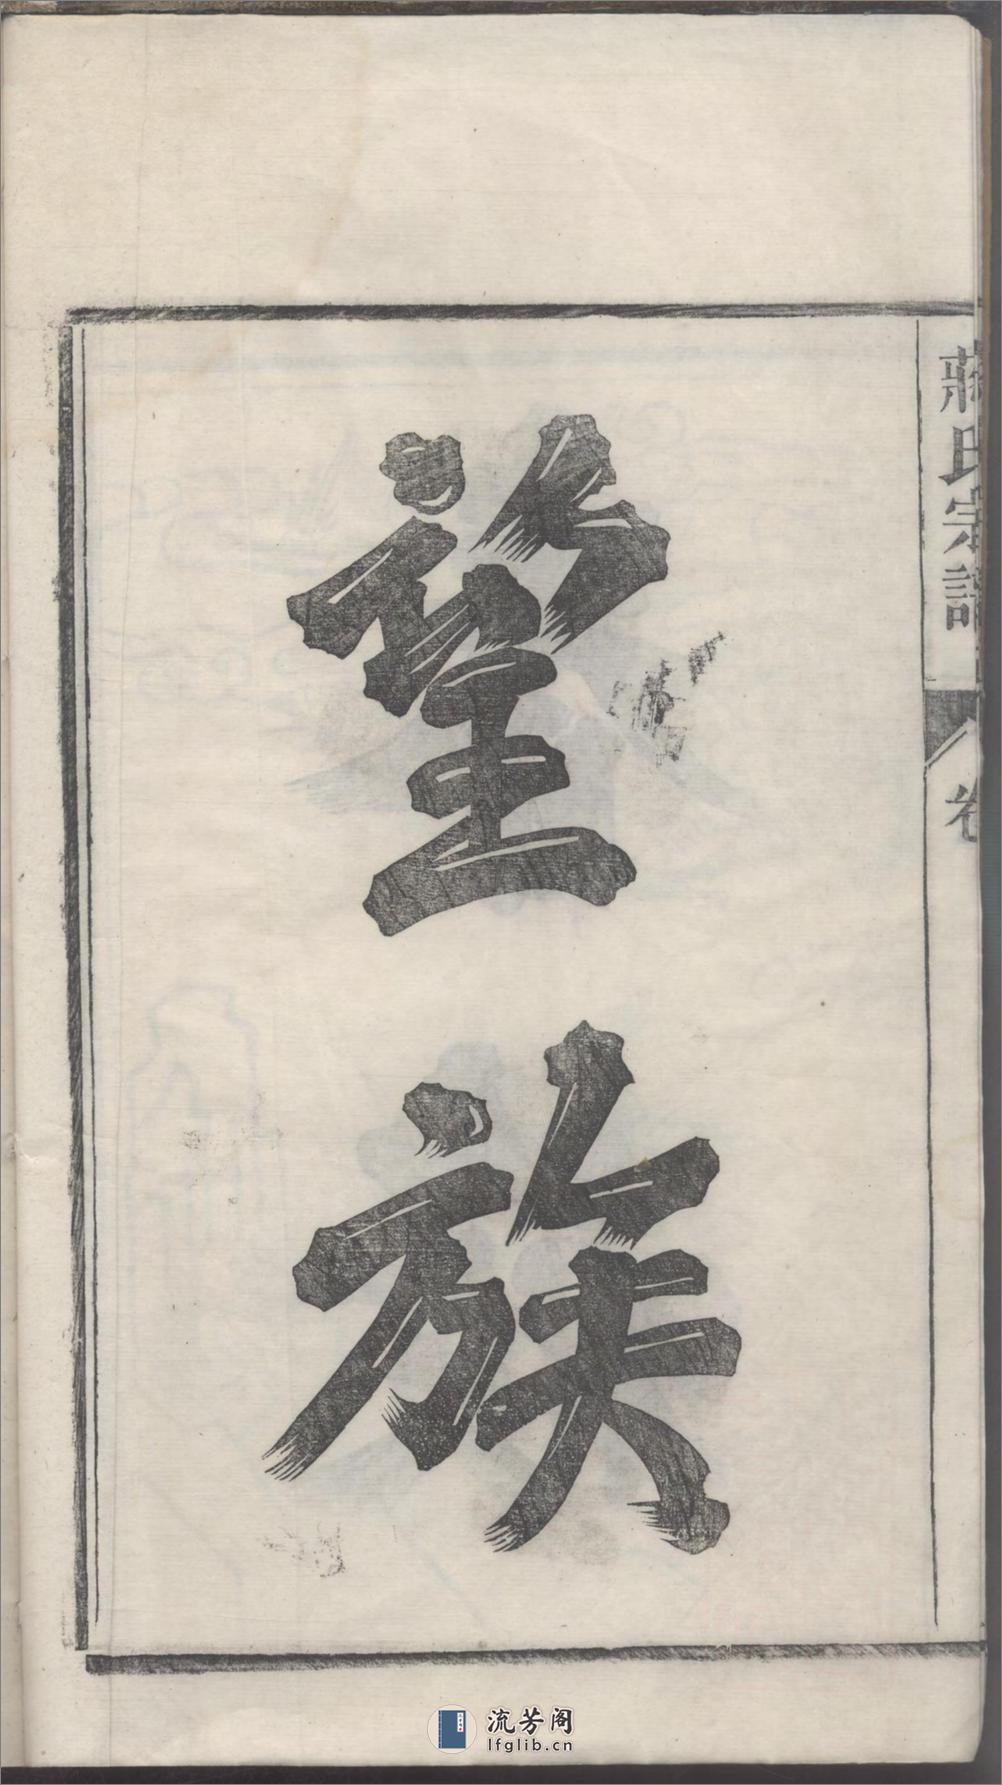 蔣氏宗譜
卷
望
族
流芳阁
lfglib.cn